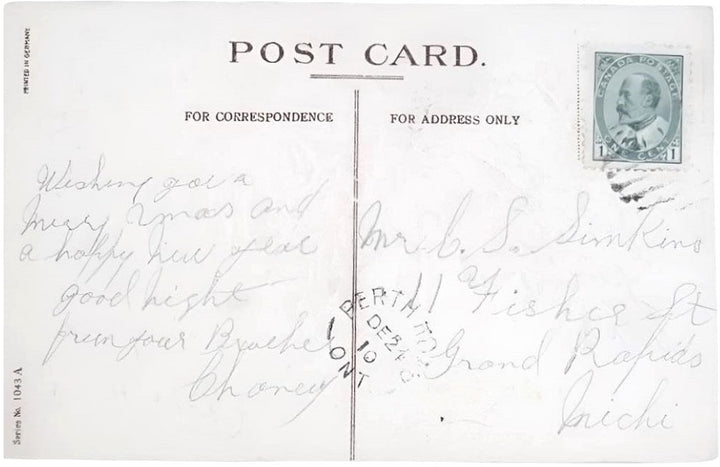 PRINTED IN GERMANY
POST CARD.
FOR CORRESPONDENCE
FOR ADDRESS ONLY
CANADA POSTAGE
1 ONE CENT 1
Wishing you a
Merry Xmas and
a happy New year
good night
from your Brother
Mr C. S. Simkins
11 Fisher St
Grand Rapids
Michi
PERTH
DE 24
10
ONT
Series No. 1043 A